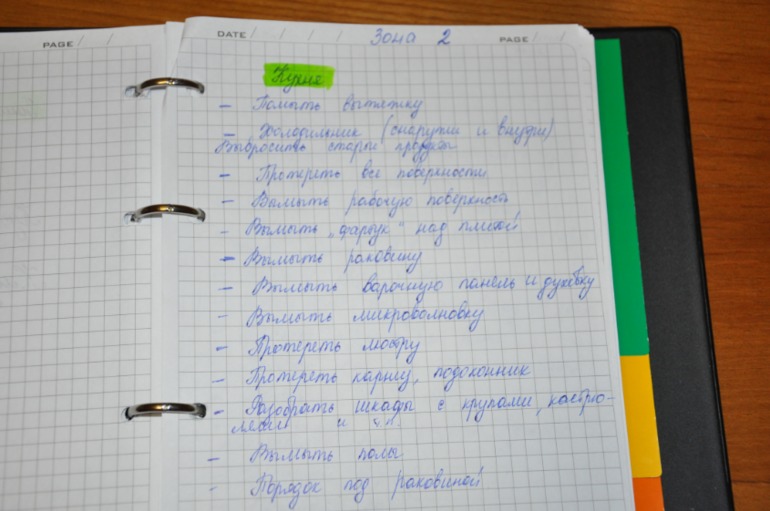 PAGE / /
DATE / / / / Зона 2 PAGE / /
Кухня
- Помыть вытяжку
- Холодильник (снаружи и внутри)
Выбросить стары продукты
- Протереть все поверхности
- Вымыть рабочую поверхность
- Вымыть "фартук" над плитой
- Вымыть раковину
- Вымыть варочную панель и духовку
- Вымыть микроволновку
- Протереть люстру
- Протереть карниз, подоконник
- Разобрать шкафы с крупами, кастрю-
лями и
- Вымыть полы
- Порядок под раковиной